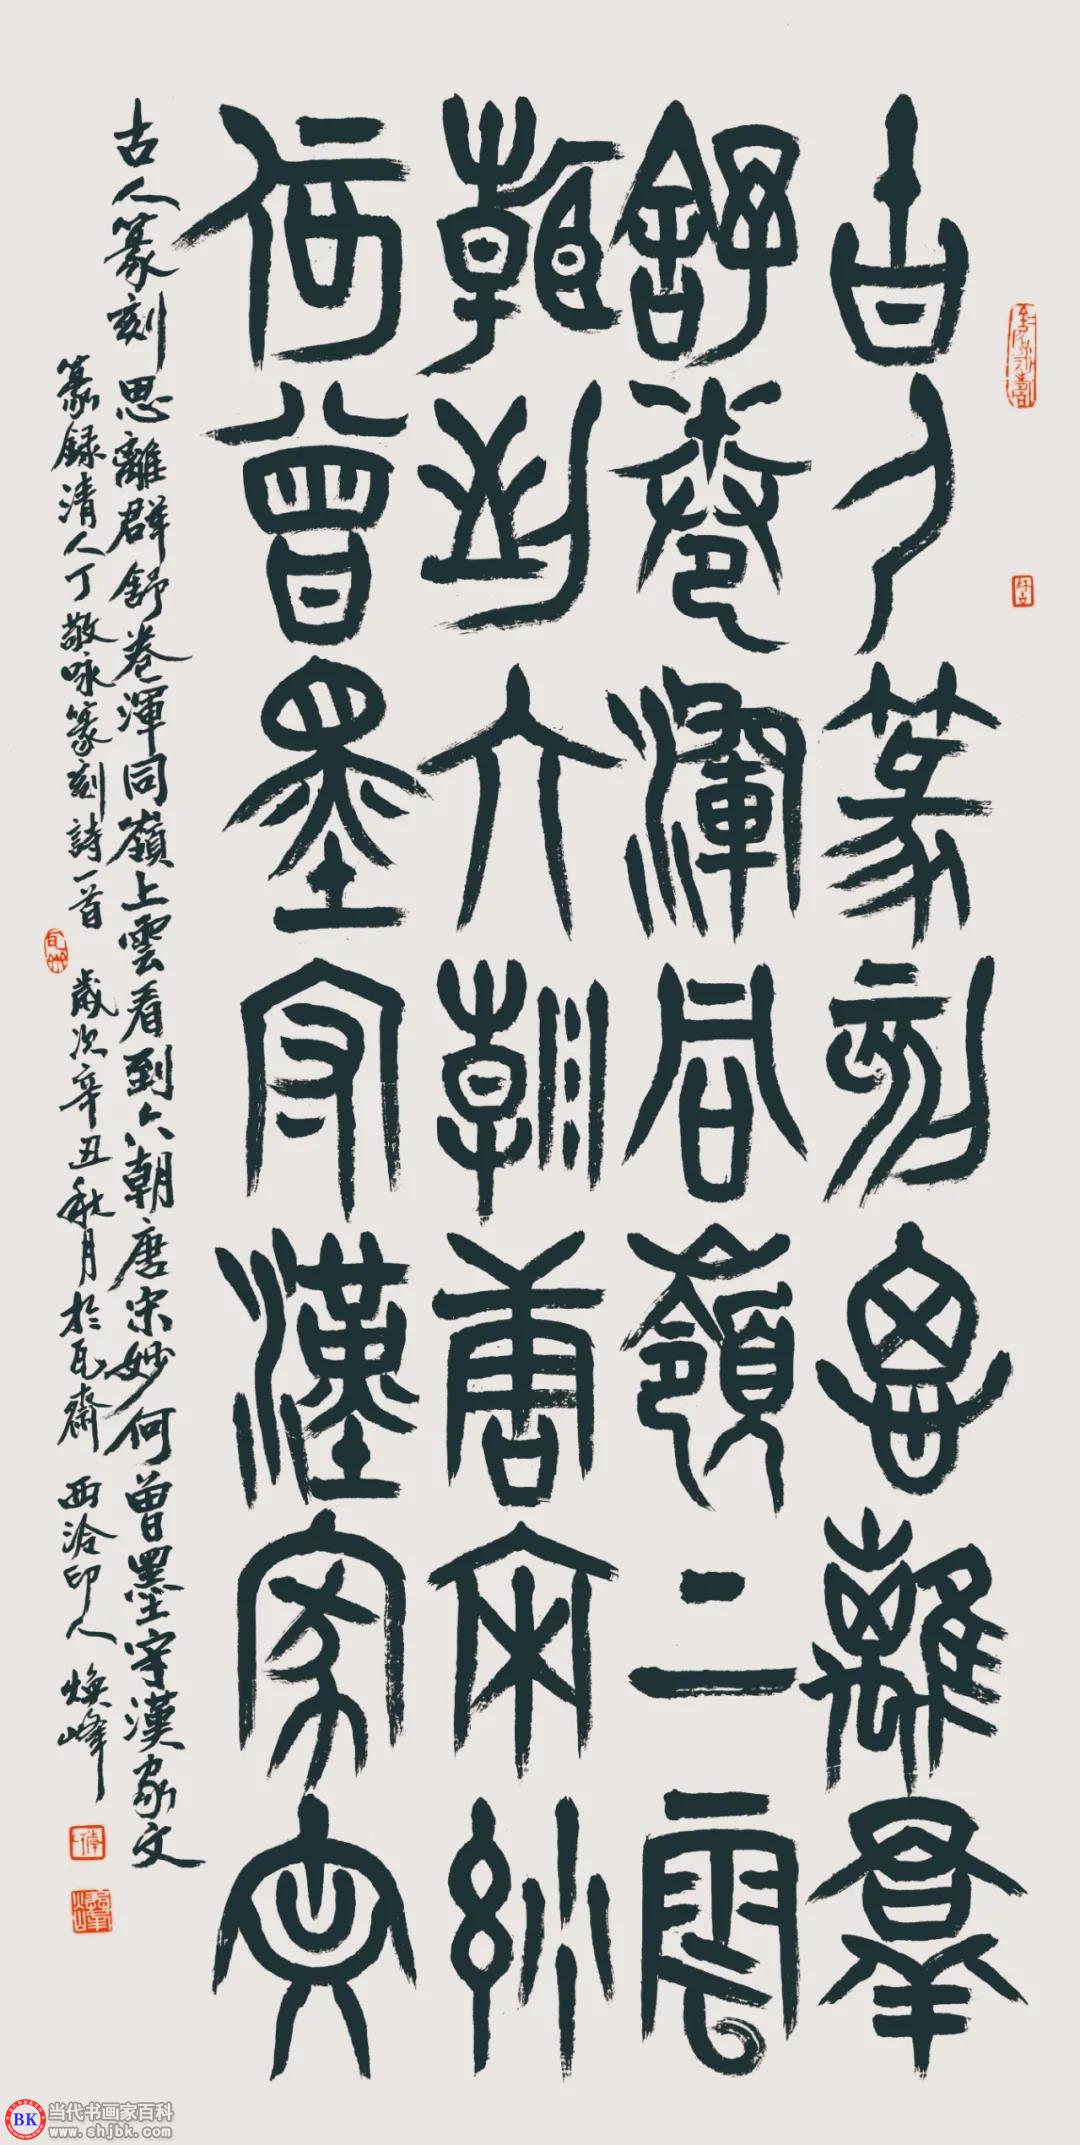 古人篆刻思離群
舒卷渾同嶺上雲
看到六朝唐宋妙
何曾墨守漢家文
古人篆刻思離群舒卷渾同嶺上雲看到六朝唐宋妙何曾墨守漢家文
篆録清人丁敬咏篆刻詩一首 歲次辛丑秋月於瓦齋 西泠印人 煥峰
BK 当代书画家百科
www.shjbk.com